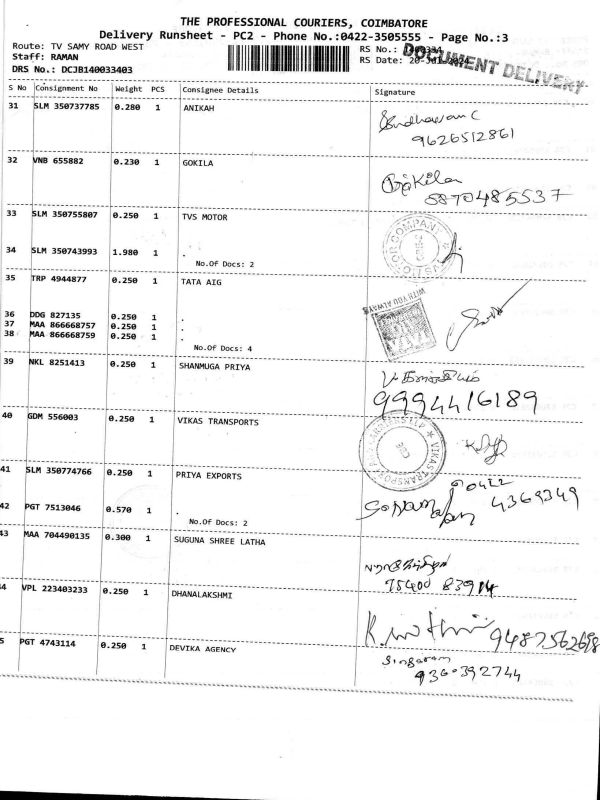 THE PROFESSIONAL COURIERS, COIMBATORE
Delivery Runsheet - PC2 - Phone No.:0422-3505555 - Page No.:3
Route: TV SAMY ROAD WEST
RS No.:
Staff: RAMAN
RS Date: 20-Jul-2024
DOCUMENT DELIVERY
DRS No.: DCJB140033403
S No Consignment No Weight PCS Consignee Details Signature
31 SLM 350737785 0.280 1 ANIKAH
9626512861
32 VNB 655882 0.230 1 GOKILA
Gokila
5870485537
33 SLM 350755807 0.250 1 TVS MOTOR
34 SLM 350743993 1.980 1 .
No.Of Docs: 2
35 TRP 4944877 0.250 1 TATA AIG
WITH YOU ALWAYS
36 DDG 827135 0.250 1 .
37 MAA 866668757 0.250 1 .
38 MAA 866668759 0.250 1 .
No.Of Docs: 4
39 NKL 8251413 0.250 1 SHANMUGA PRIYA
9994416189
40 GDM 556003 0.250 1 VIKAS TRANSPORTS
41 SLM 350774766 0.250 1 PRIYA EXPORTS
0422
4369349
42 PGT 7513046 0.570 1 .
No.Of Docs: 2
43 MAA 704490135 0.300 1 SUGUNA SHREE LATHA
75400 83914
4 VPL 223403233 0.250 1 DHANALAKSHMI
9487562698
5 PGT 4743114 0.250 1 DEVIKA AGENCY
Singaram
9360392744